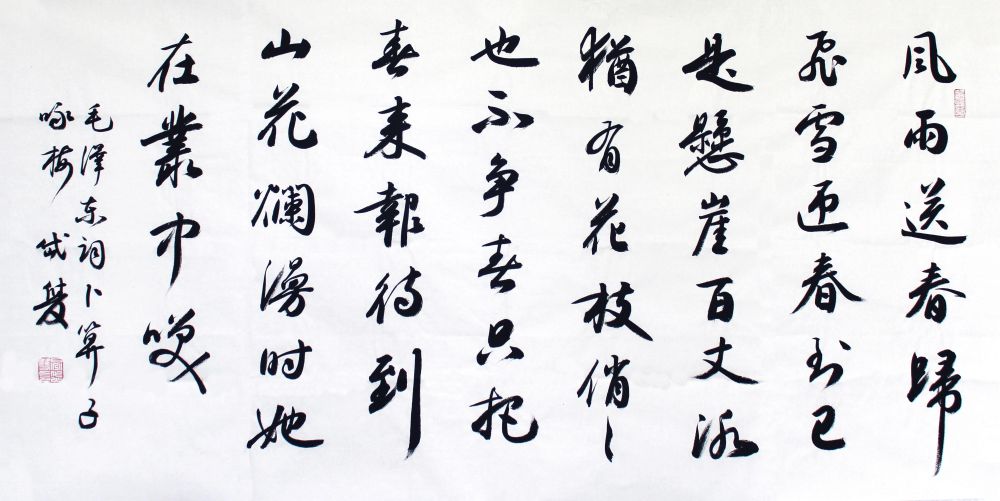 風雨送春歸
飛雪迎春到已
是懸崖百丈冰
猶有花枝俏々
也不争春只把
春来報待到
山花爛漫时她
在叢中咲
毛泽东词卜算子
咏梅